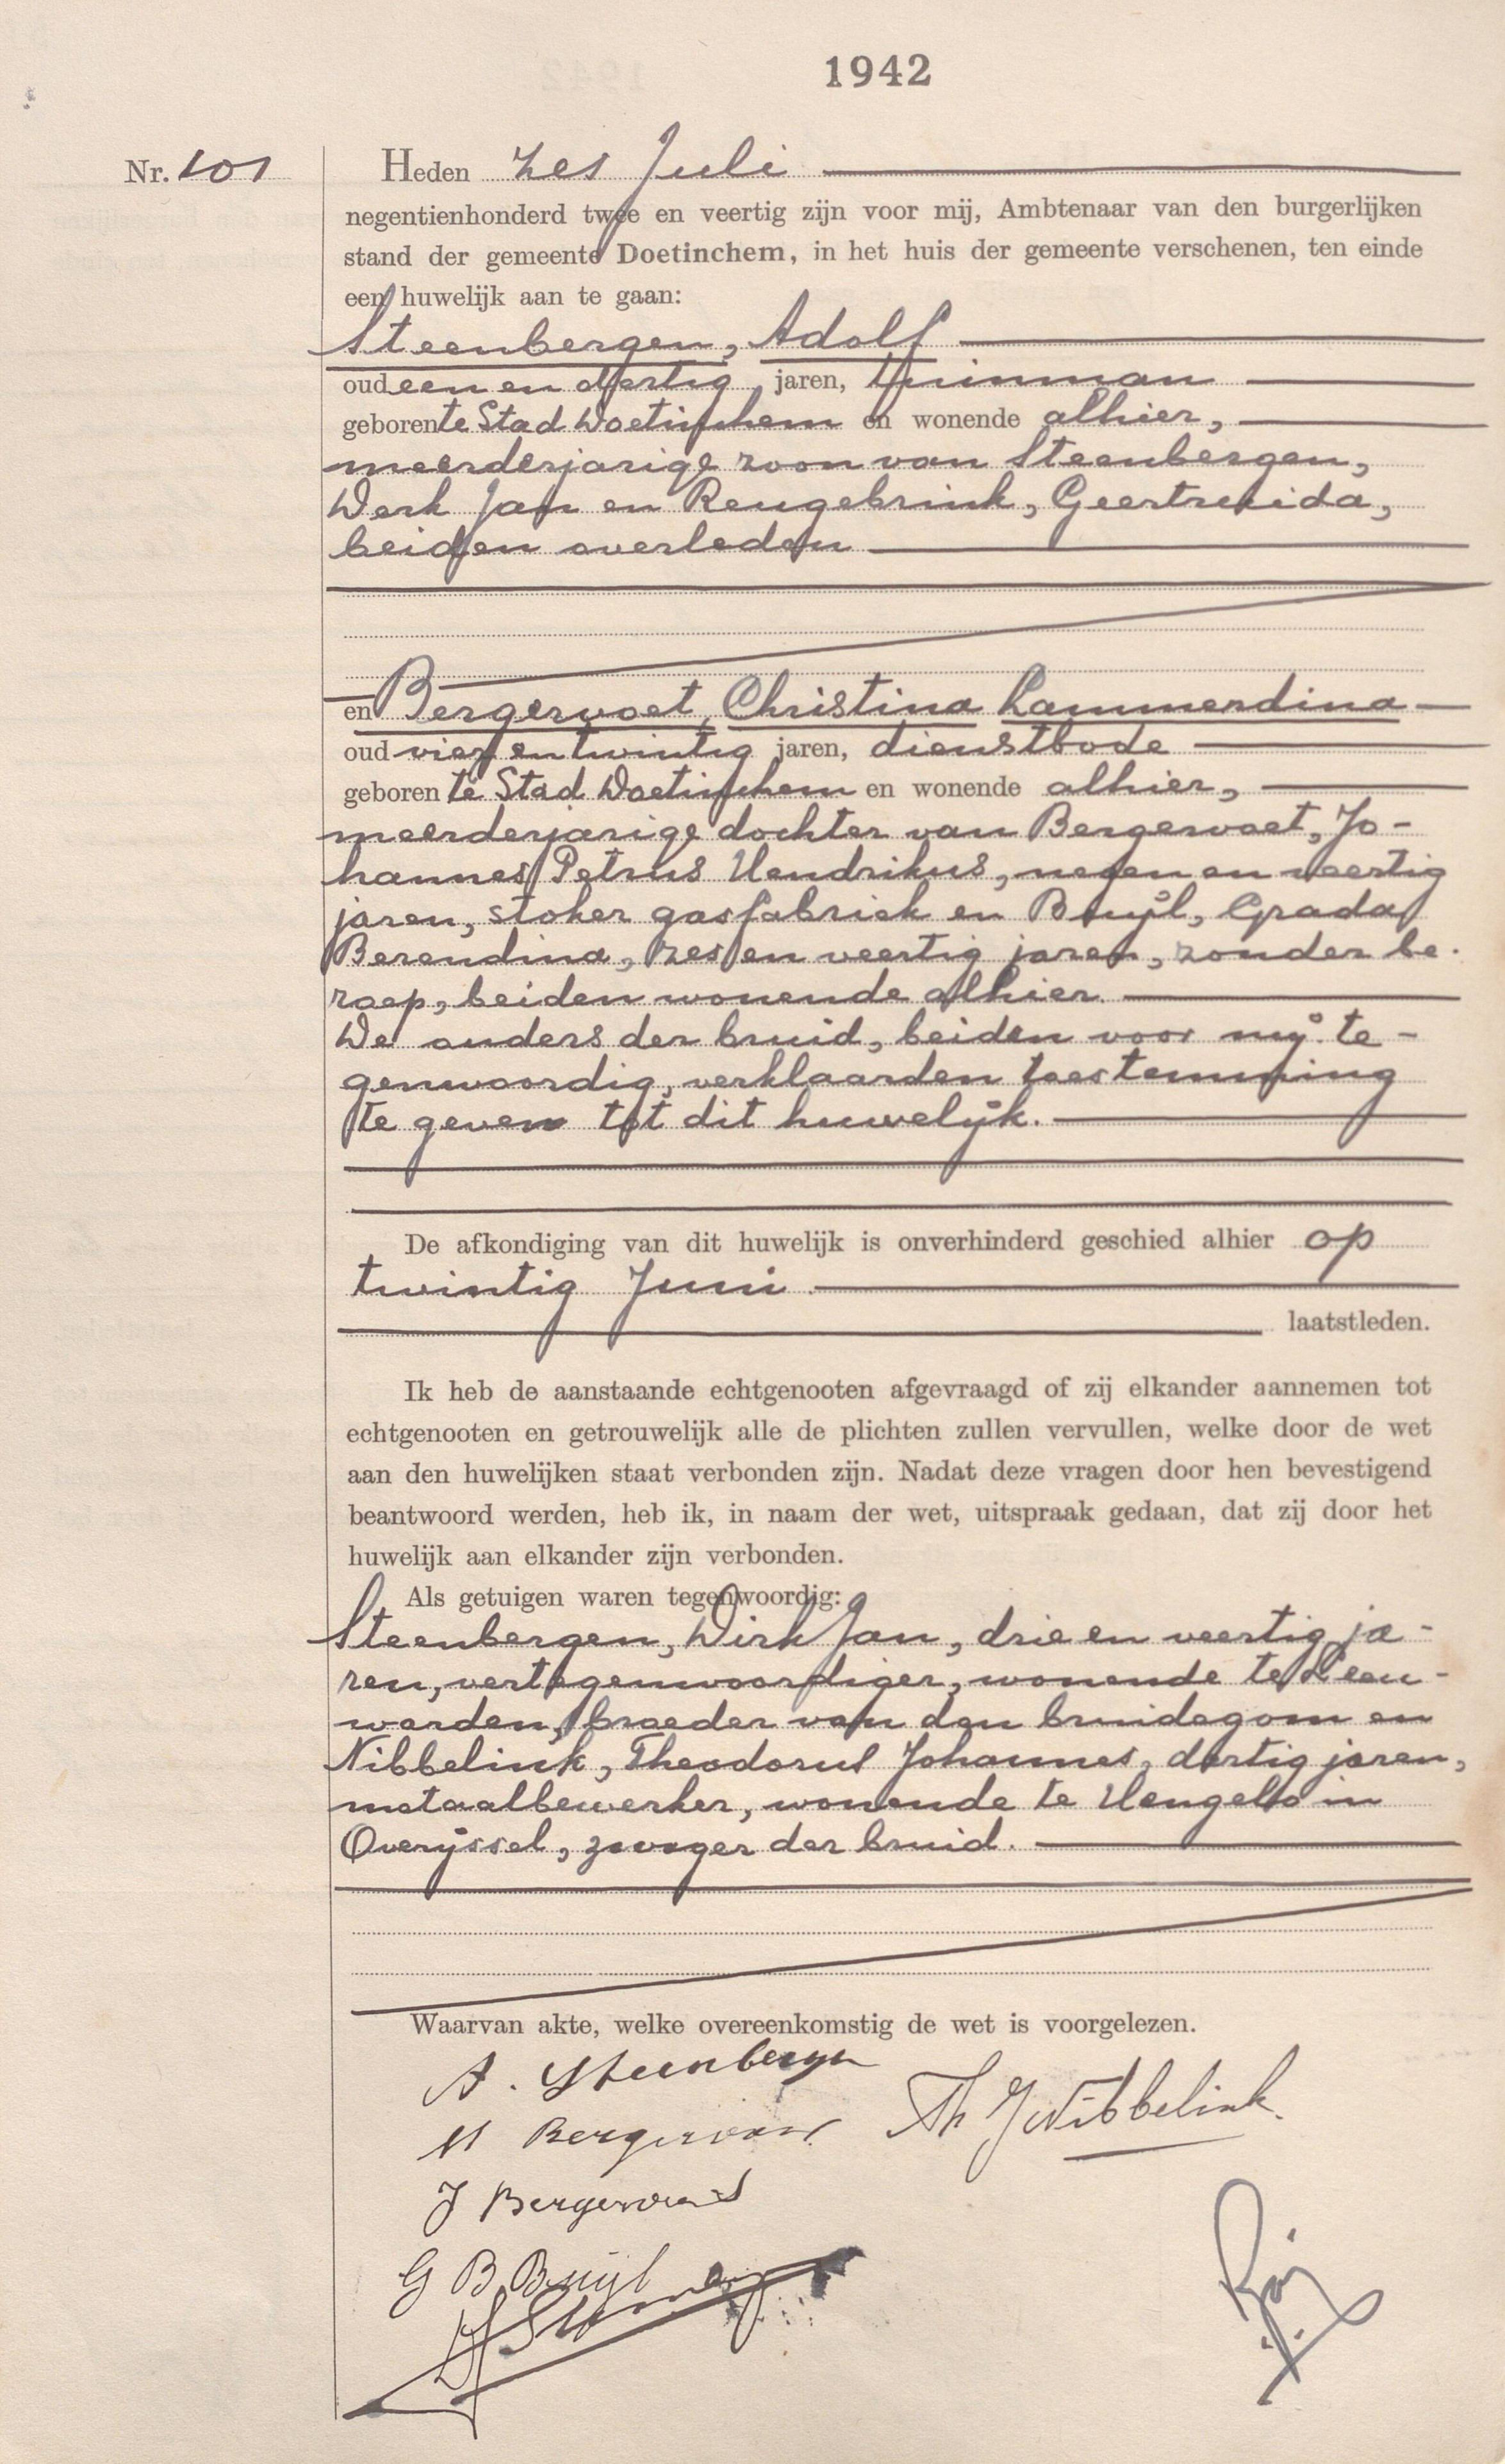 1942
Nr. 101
Heden zes Juli
negentienhonderd twee en veertig zijn voor mij, Ambtenaar van den burgerlijken
stand der gemeente Doetinchem, in het huis der gemeente verschenen, ten einde
een huwelijk aan te gaan:
Steenbergen, Adolf
oud een en dertig jaren, tuinman
geboren te Stad Doetinchem en wonende alhier,
meerderjarige zoon van Steenbergen,
Derk Jan en Rengebrink, Geertruida,
beiden overleden
en Bergervoet, Christina Lammerdina
oud vier en twintig jaren, dienstbode
geboren te Stad Doetinchem en wonende alhier,
meerderjarige dochter van Bergervoet, Jo-
hannes Petrus Hendrikus, negen en veertig
jaren, stoker gasfabriek en Bruijl, Grada
Berendina, zes en veertig jaren, zonder be-
roep, beiden wonende alhier.
De ouders der bruid, beiden voor mij te-
genwoordig, verklaarden toestemming
te geven tot dit huwelijk.
De afkondiging van dit huwelijk is onverhinderd geschied alhier op
twintig Juni
laatstleden.
Ik heb de aanstaande echtgenooten afgevraagd of zij elkander aannemen tot
echtgenooten en getrouwelijk alle de plichten zullen vervullen, welke door de wet
aan den huwelijken staat verbonden zijn. Nadat deze vragen door hen bevestigend
beantwoord werden, heb ik, in naam der wet, uitspraak gedaan, dat zij door het
huwelijk aan elkander zijn verbonden.
Als getuigen waren tegenwoordig:
Steenbergen, Dirk Jan, drie en veertig ja-
ren, vertegenwoordiger, wonende te Leeu-
warden, broeder van den bruidegom en
Nibbelink, Theodorus Johannes, dertig jaren,
metaalbewerker, wonende te Hengelo in
Overijssel, zwager der bruid.
Waarvan akte, welke overeenkomstig de wet is voorgelezen.
A. Steenbergen
Th J Nibbelink.
Bergervoet
J Bergervoet
G B Bruijl